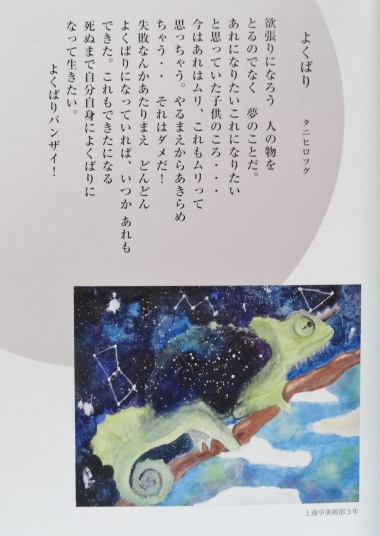 よくばり
タニヒロツグ
欲張りになろう　人の物を
とるのでなく　夢のことだ。
あれになりたいこれになりたい
と思っていた子供のころ・・・
今はあれはムリ、これもムリって
思っちゃう。やるまえからあきらめ
ちゃう・・　それはダメだ！
失敗なんかあたりまえ　どんどん
よくばりになっていれば、いつか あれも
できた。これもできたになる
死ぬまで自分自身によくばりに
なって生きたい。
よくばりバンザイ！
上南中美術部３年